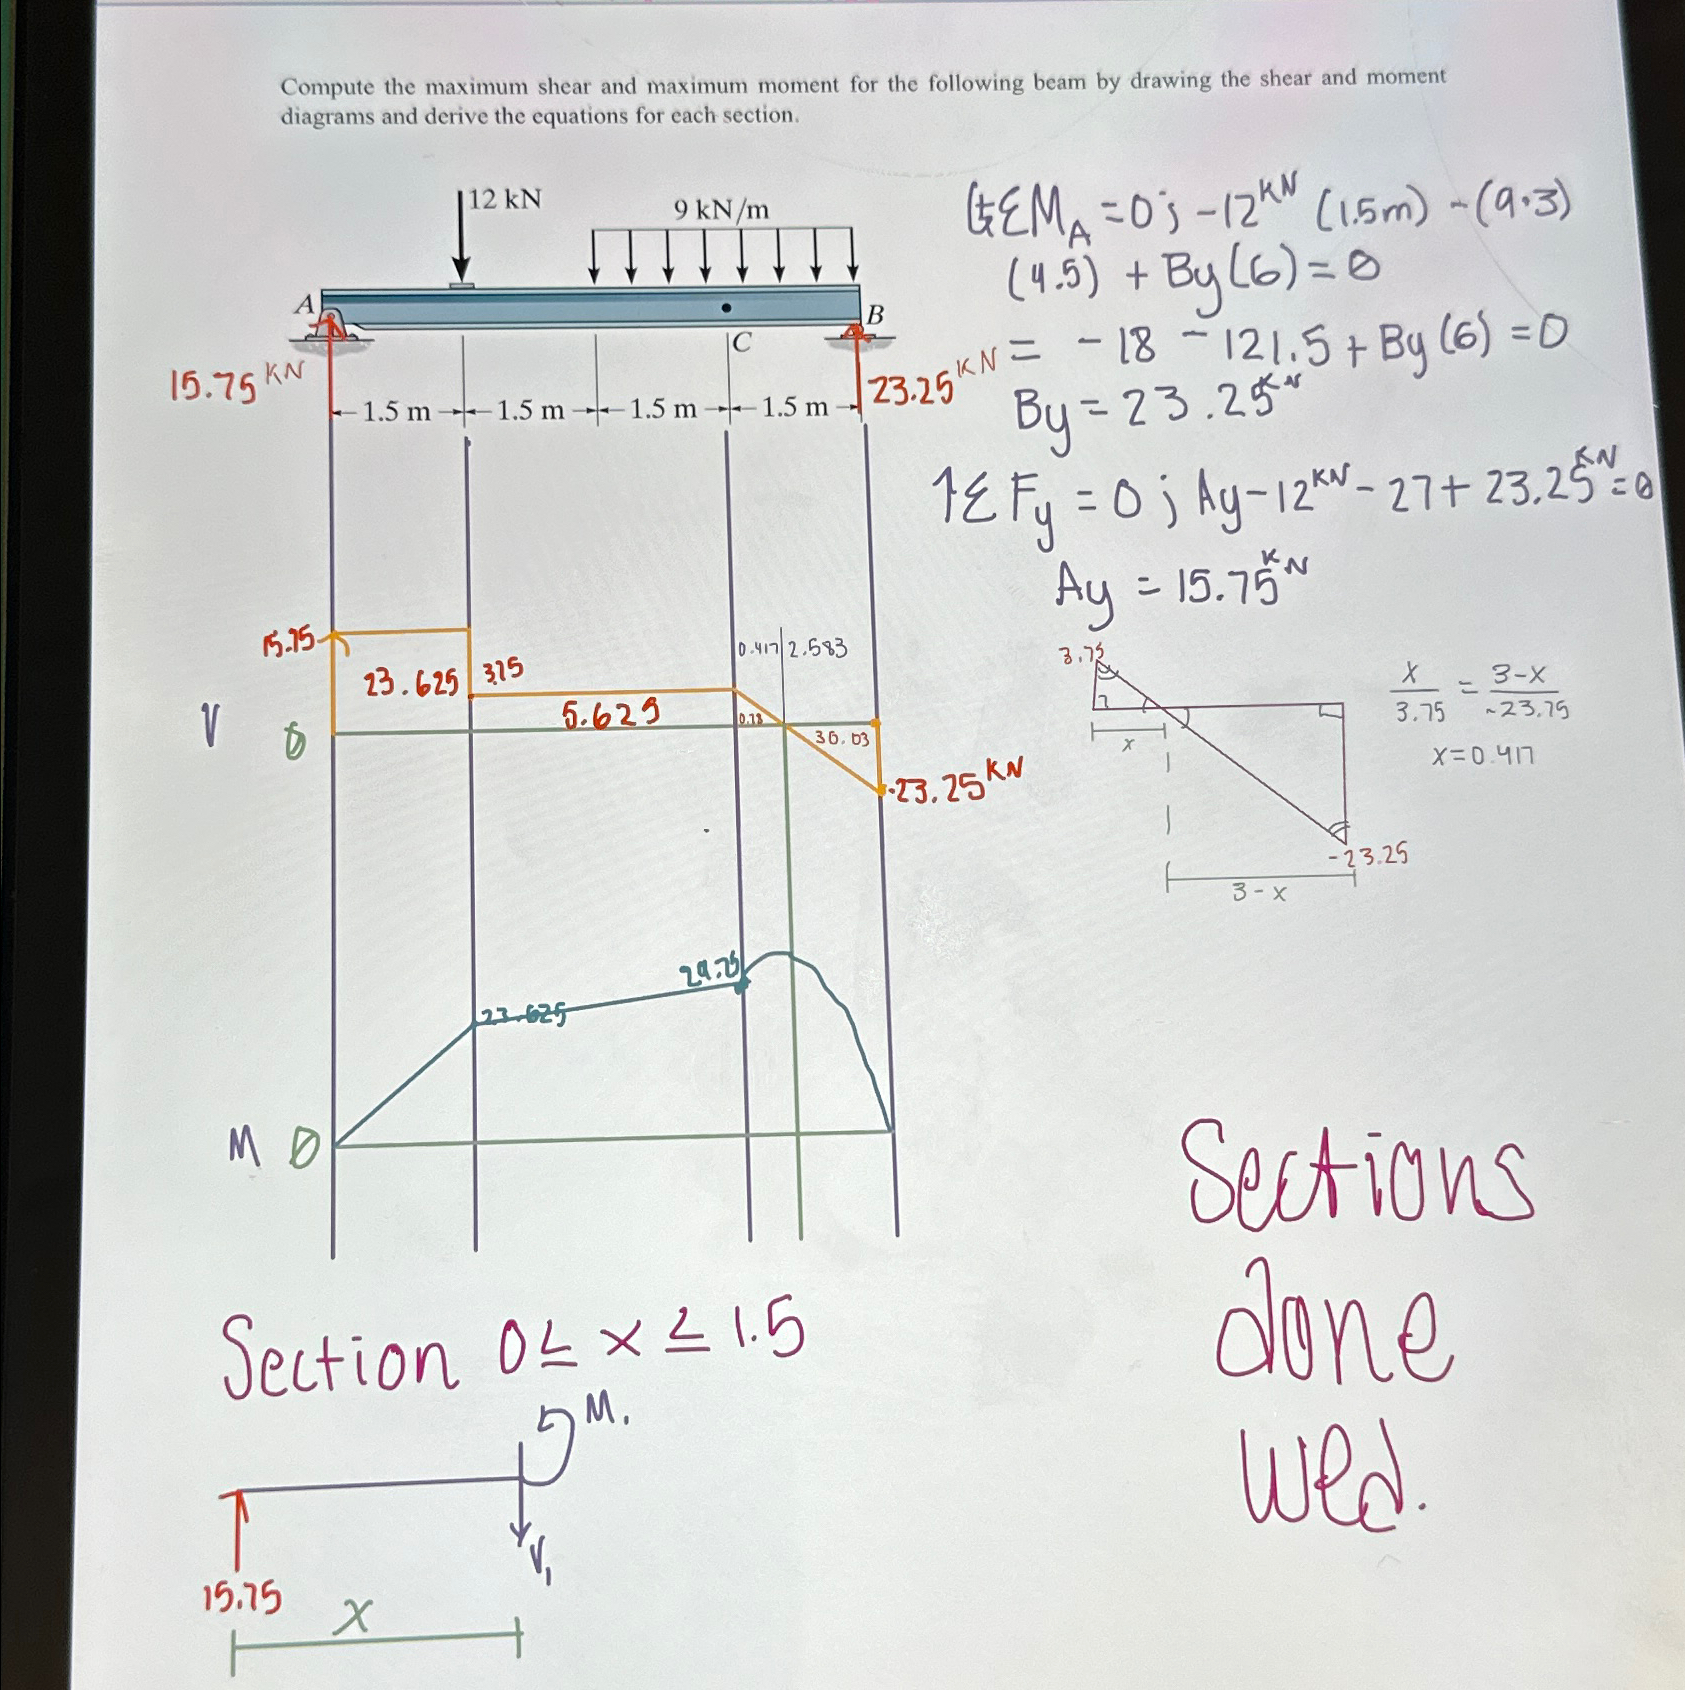 Compute the maximum shear and maximum moment for the following beam by drawing the shear and moment
diagrams and derive the equations for each section.
12 kN
9 kN/m
A
B
C
15.75 KN
23.25 KN
1.5 m
1.5 m
1.5 m
1.5 m
↺+ΣM_A = 0; -12 KN (1.5m) - (9·3)
(4.5) + By(6) = 0
= -18 - 121.5 + By(6) = 0
By = 23.25 KN
↑ΣFy = 0; Ay - 12 KN - 27 + 23.25 KN = 0
Ay = 15.75 KN
15.75
23.625
3.75
5.625
0.417
2.583
0.78
30.03
V
0
-23.25 KN
3.75
x
-23.25
3-x
x/3.75 = 3-x/-23.75
x=0.417
23.625
29.25
M
0
Sections
done
wed.
Section 0 ≤ x ≤ 1.5
M₁
V₁
15.75
X